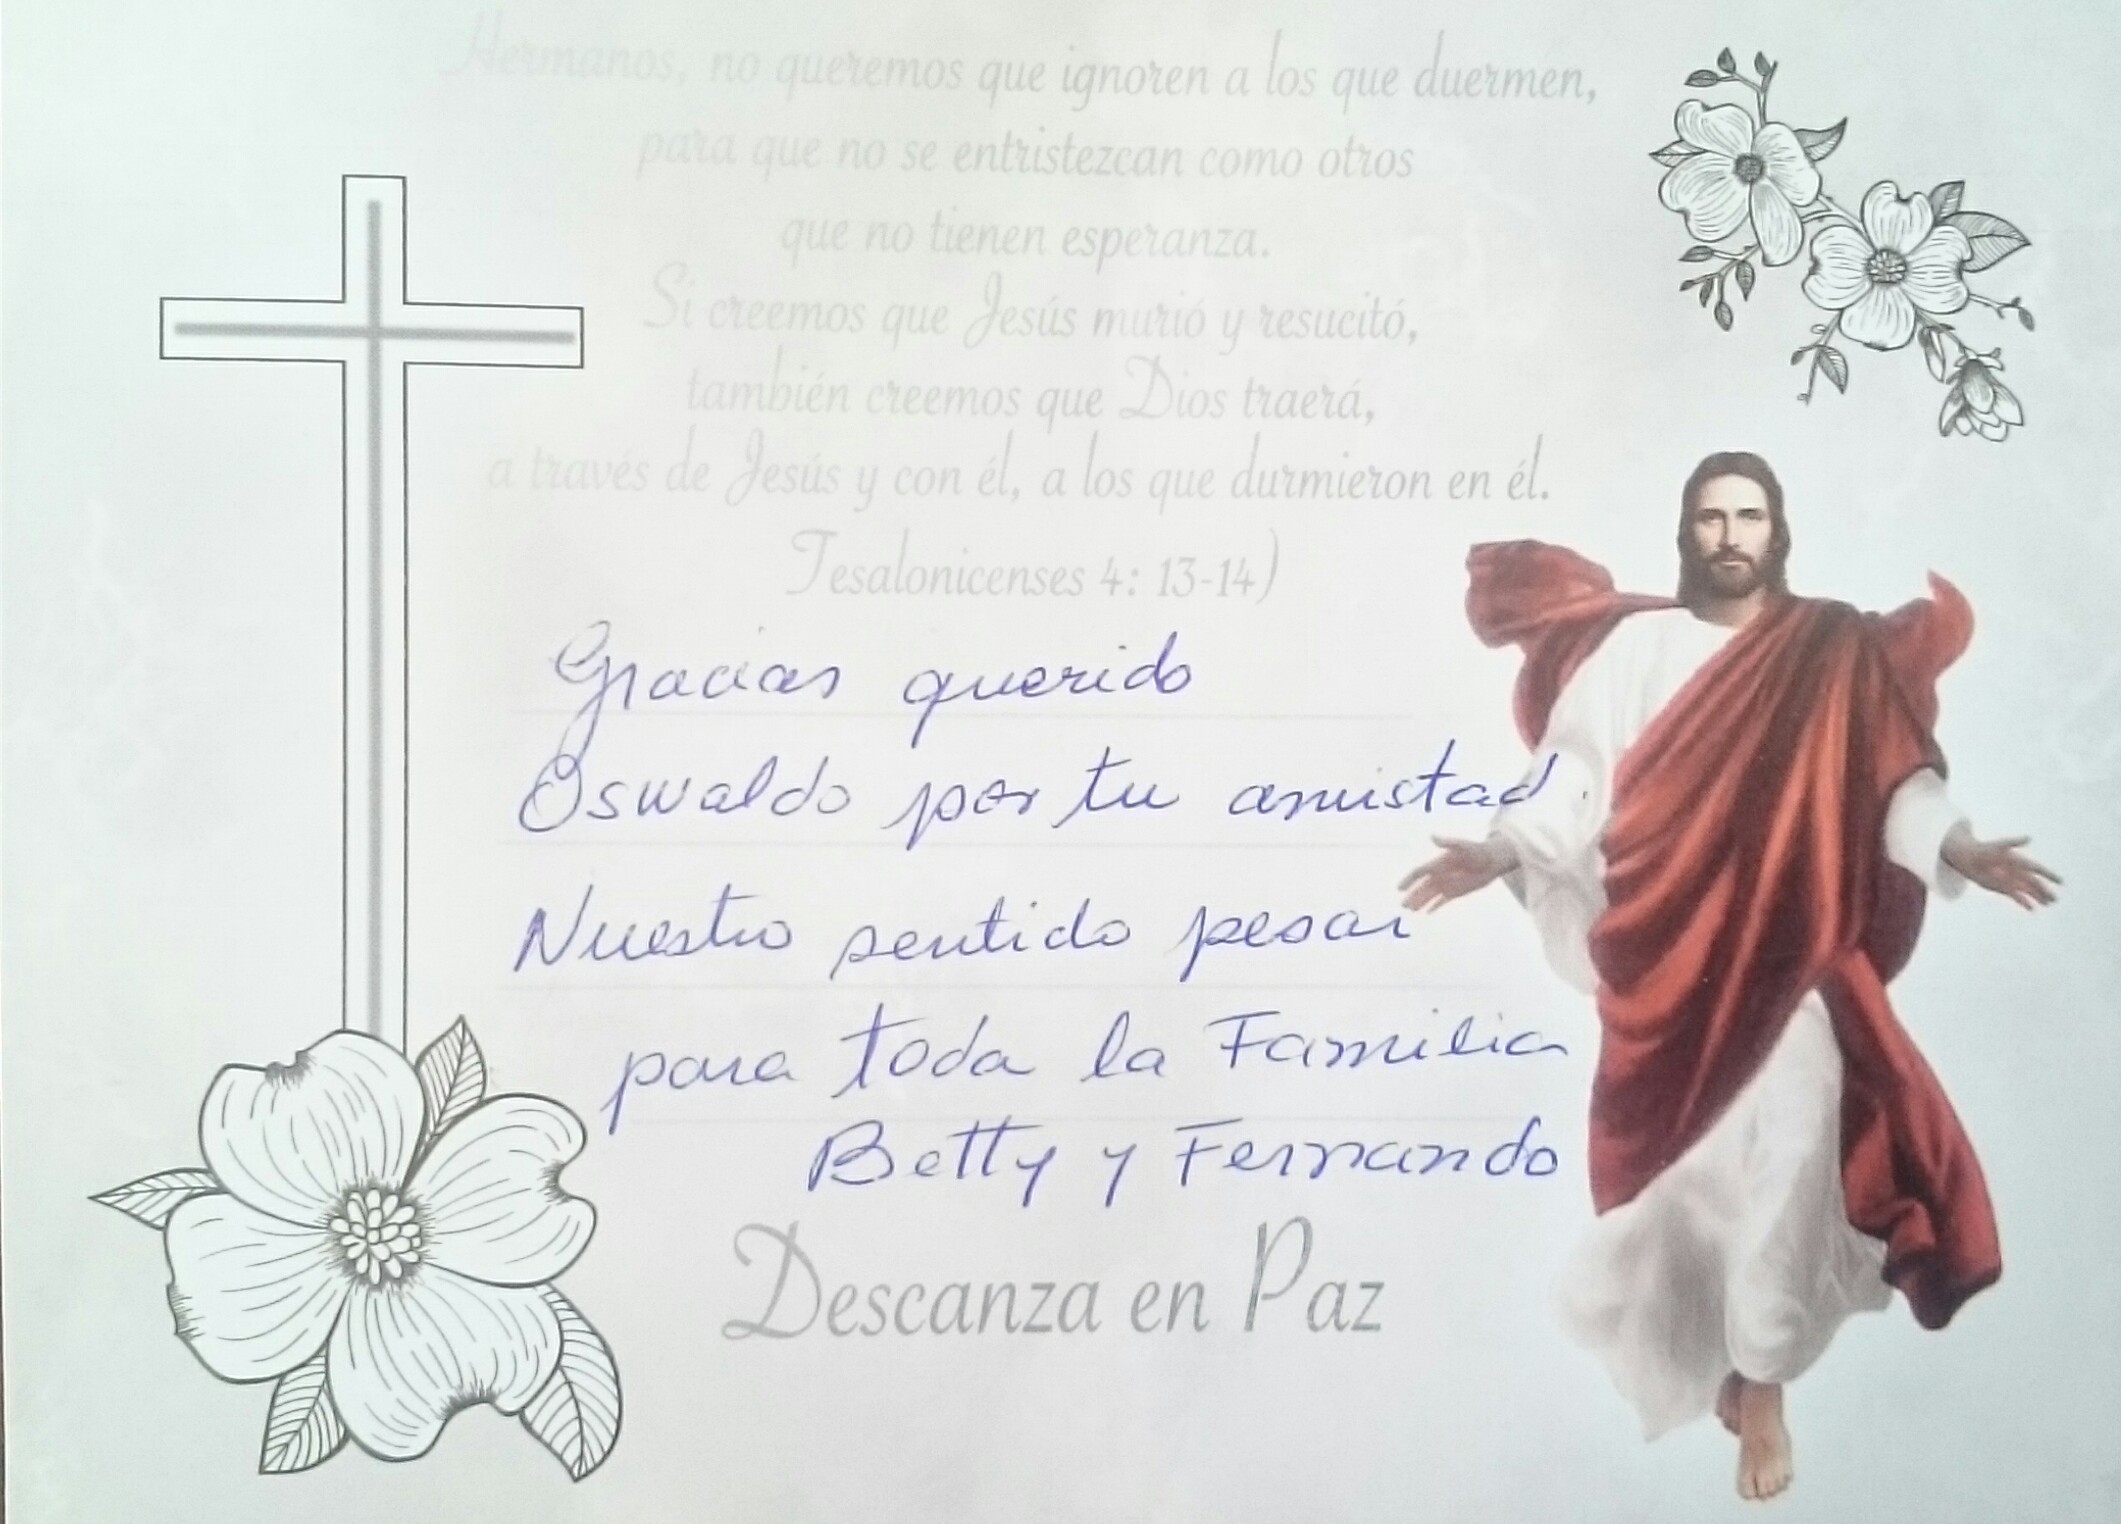 Hermanos, no queremos que ignoren a los que duermen,
para que no se entristezcan como otros
que no tienen esperanza.
Si creemos que Jesús murió y resucitó,
también creemos que Dios traerá,
a través de Jesús y con él, a los que durmieron en él.
Tesalonicenses 4: 13-14)
Gracias querido
Oswaldo por tu amistad.
Nuestro sentido pesar
para toda la Familia
Betty y Fernando
Descanza en Paz